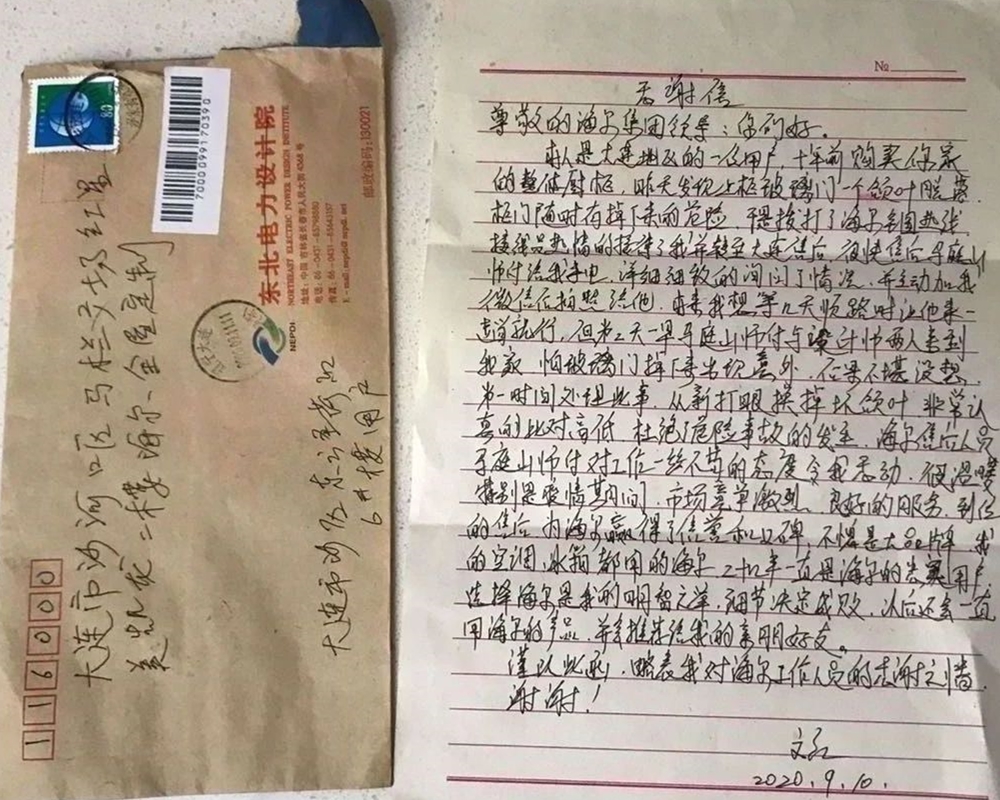 80
7000099170390
东北电力设计院
NORTHEAST ELECTRIC POWER DESIGN INSTITUTE
地址：中国 吉林省长春市人民大街4368号
邮政编码：130021
NEPDI
大连市沙河口区马栏广场红星
美凯龙二楼海尔全屋定制
116000
№
感谢信
尊敬的海尔集团领导：你们好。
本人是大连地区的一位用户，十年前购买你家
的整体厨柜，昨天发现上柜玻璃门一个领叶脱落
柜门随时有掉下来的危险，于是拨打了海尔集团热线
接线员热情的接待了我并转至大连售后，很快售后于庭山
师付给我来电，详细细致的询问了情况，并主动加我
微信信拍照给他，本来我想等几天顺路时让他来一
趟就行，但第2天一早于庭山师付与设计师两人来到
我家，怕玻璃门掉下来出现意外，后果不堪没想，
第一时间处理此事，从新打眼换掉坏领叶，非常认
真的比对高低，杜绝了危险事故的发生，海尔售后人员
于庭山师付对工作一丝不苟的态度令我感动，很温暖
特别是疫情期间，市场竞争激烈，良好的服务，到位
的售后，为海尔赢得了信誉和口碑，不愧是大品牌，我
的空调，冰箱都用的海尔，二十几年一直是海尔的忠实用户，
选择海尔是我的明智之举，细节决定成败，以后还会一直
用海尔的产品，并会推荐给我的亲朋好友。
谨以此函，略表我对海尔工作人员的感谢之情
谢谢！
2020.9.10.